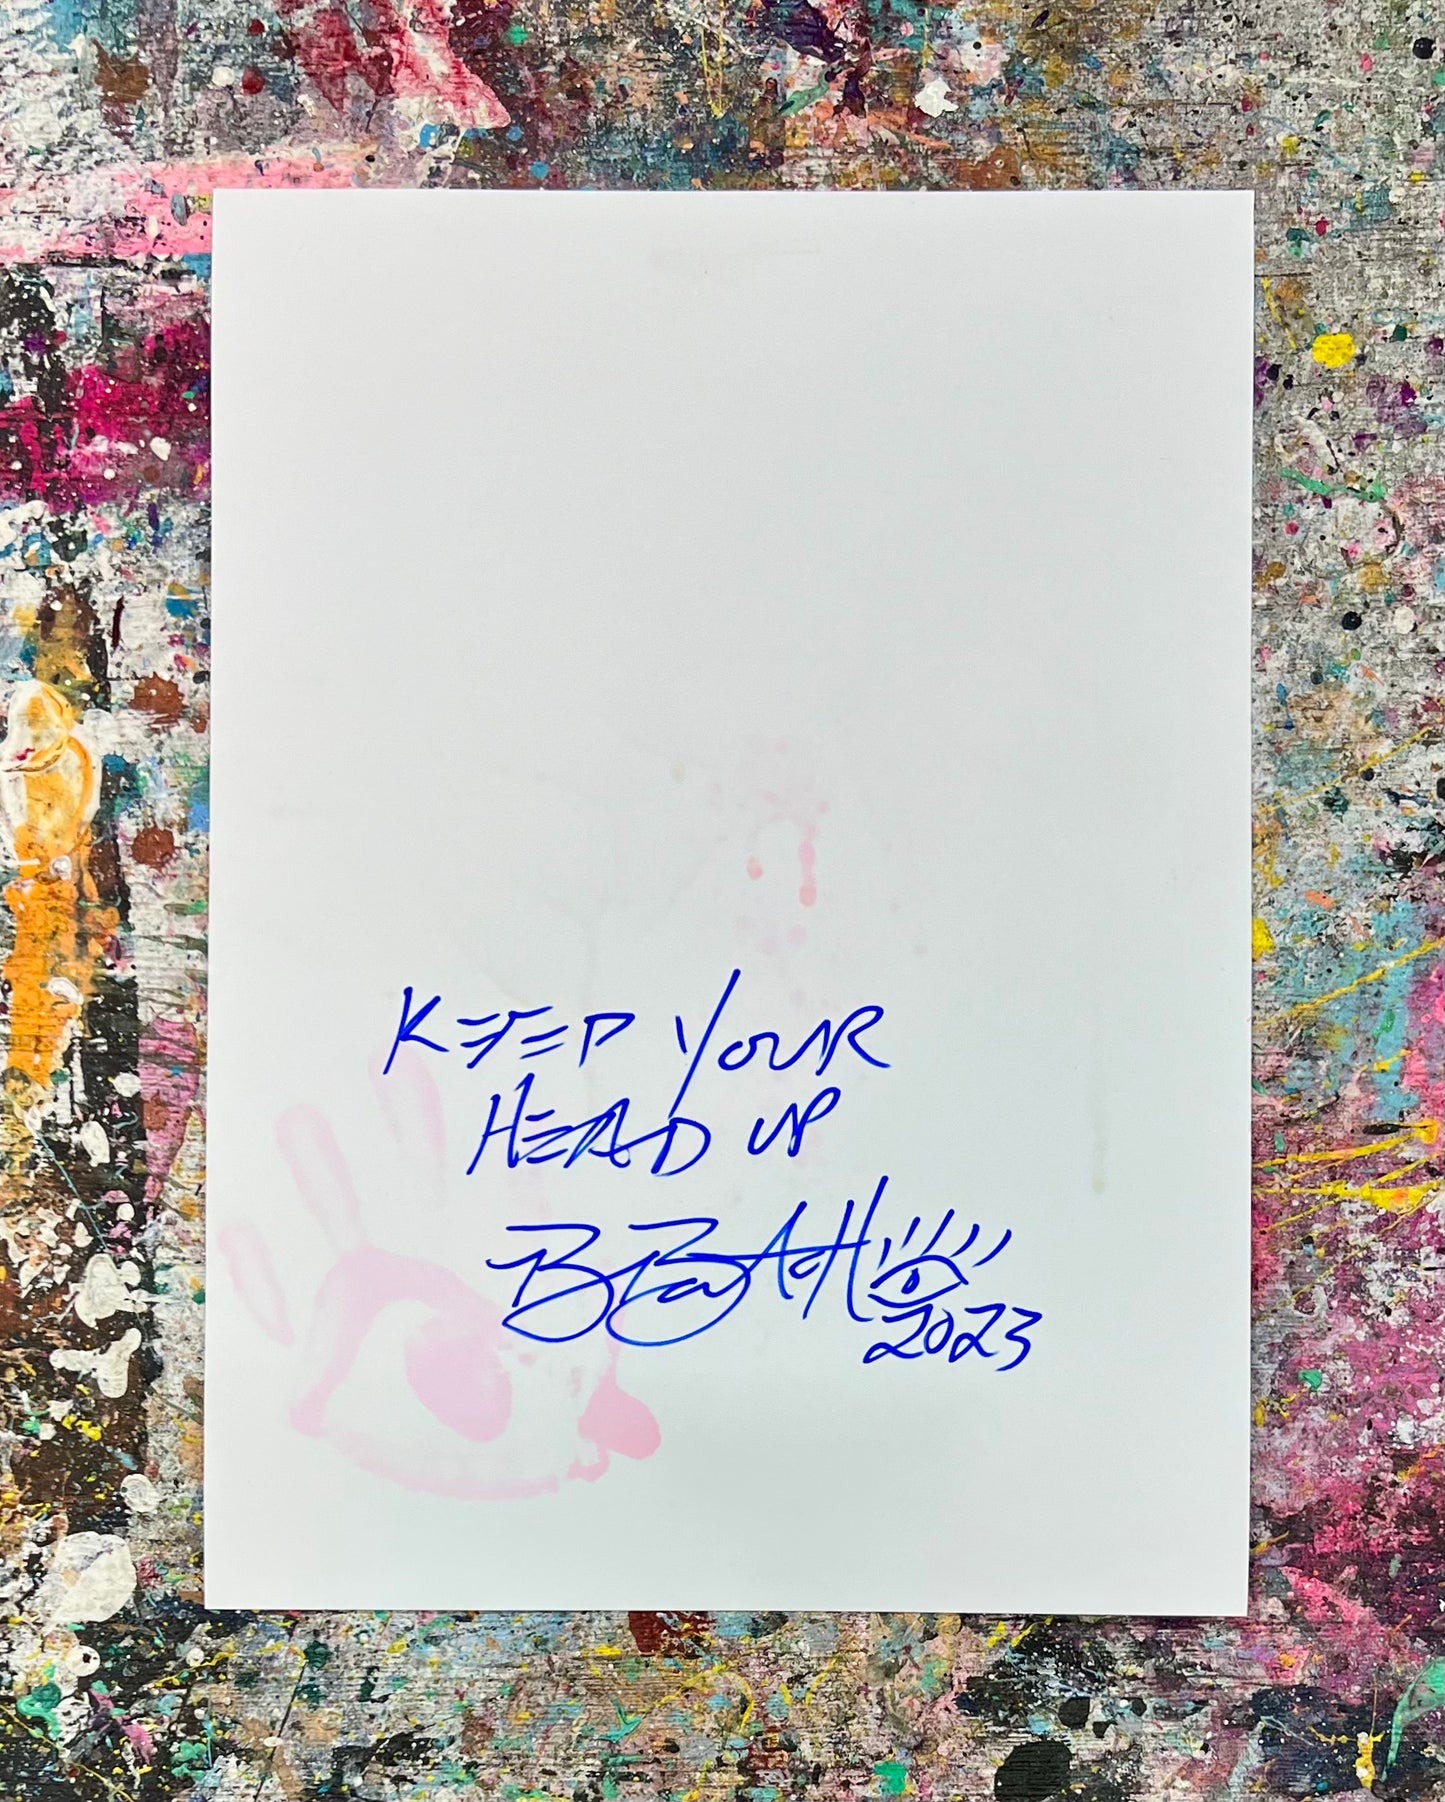 KEEP YOUR
HEAD UP
2023